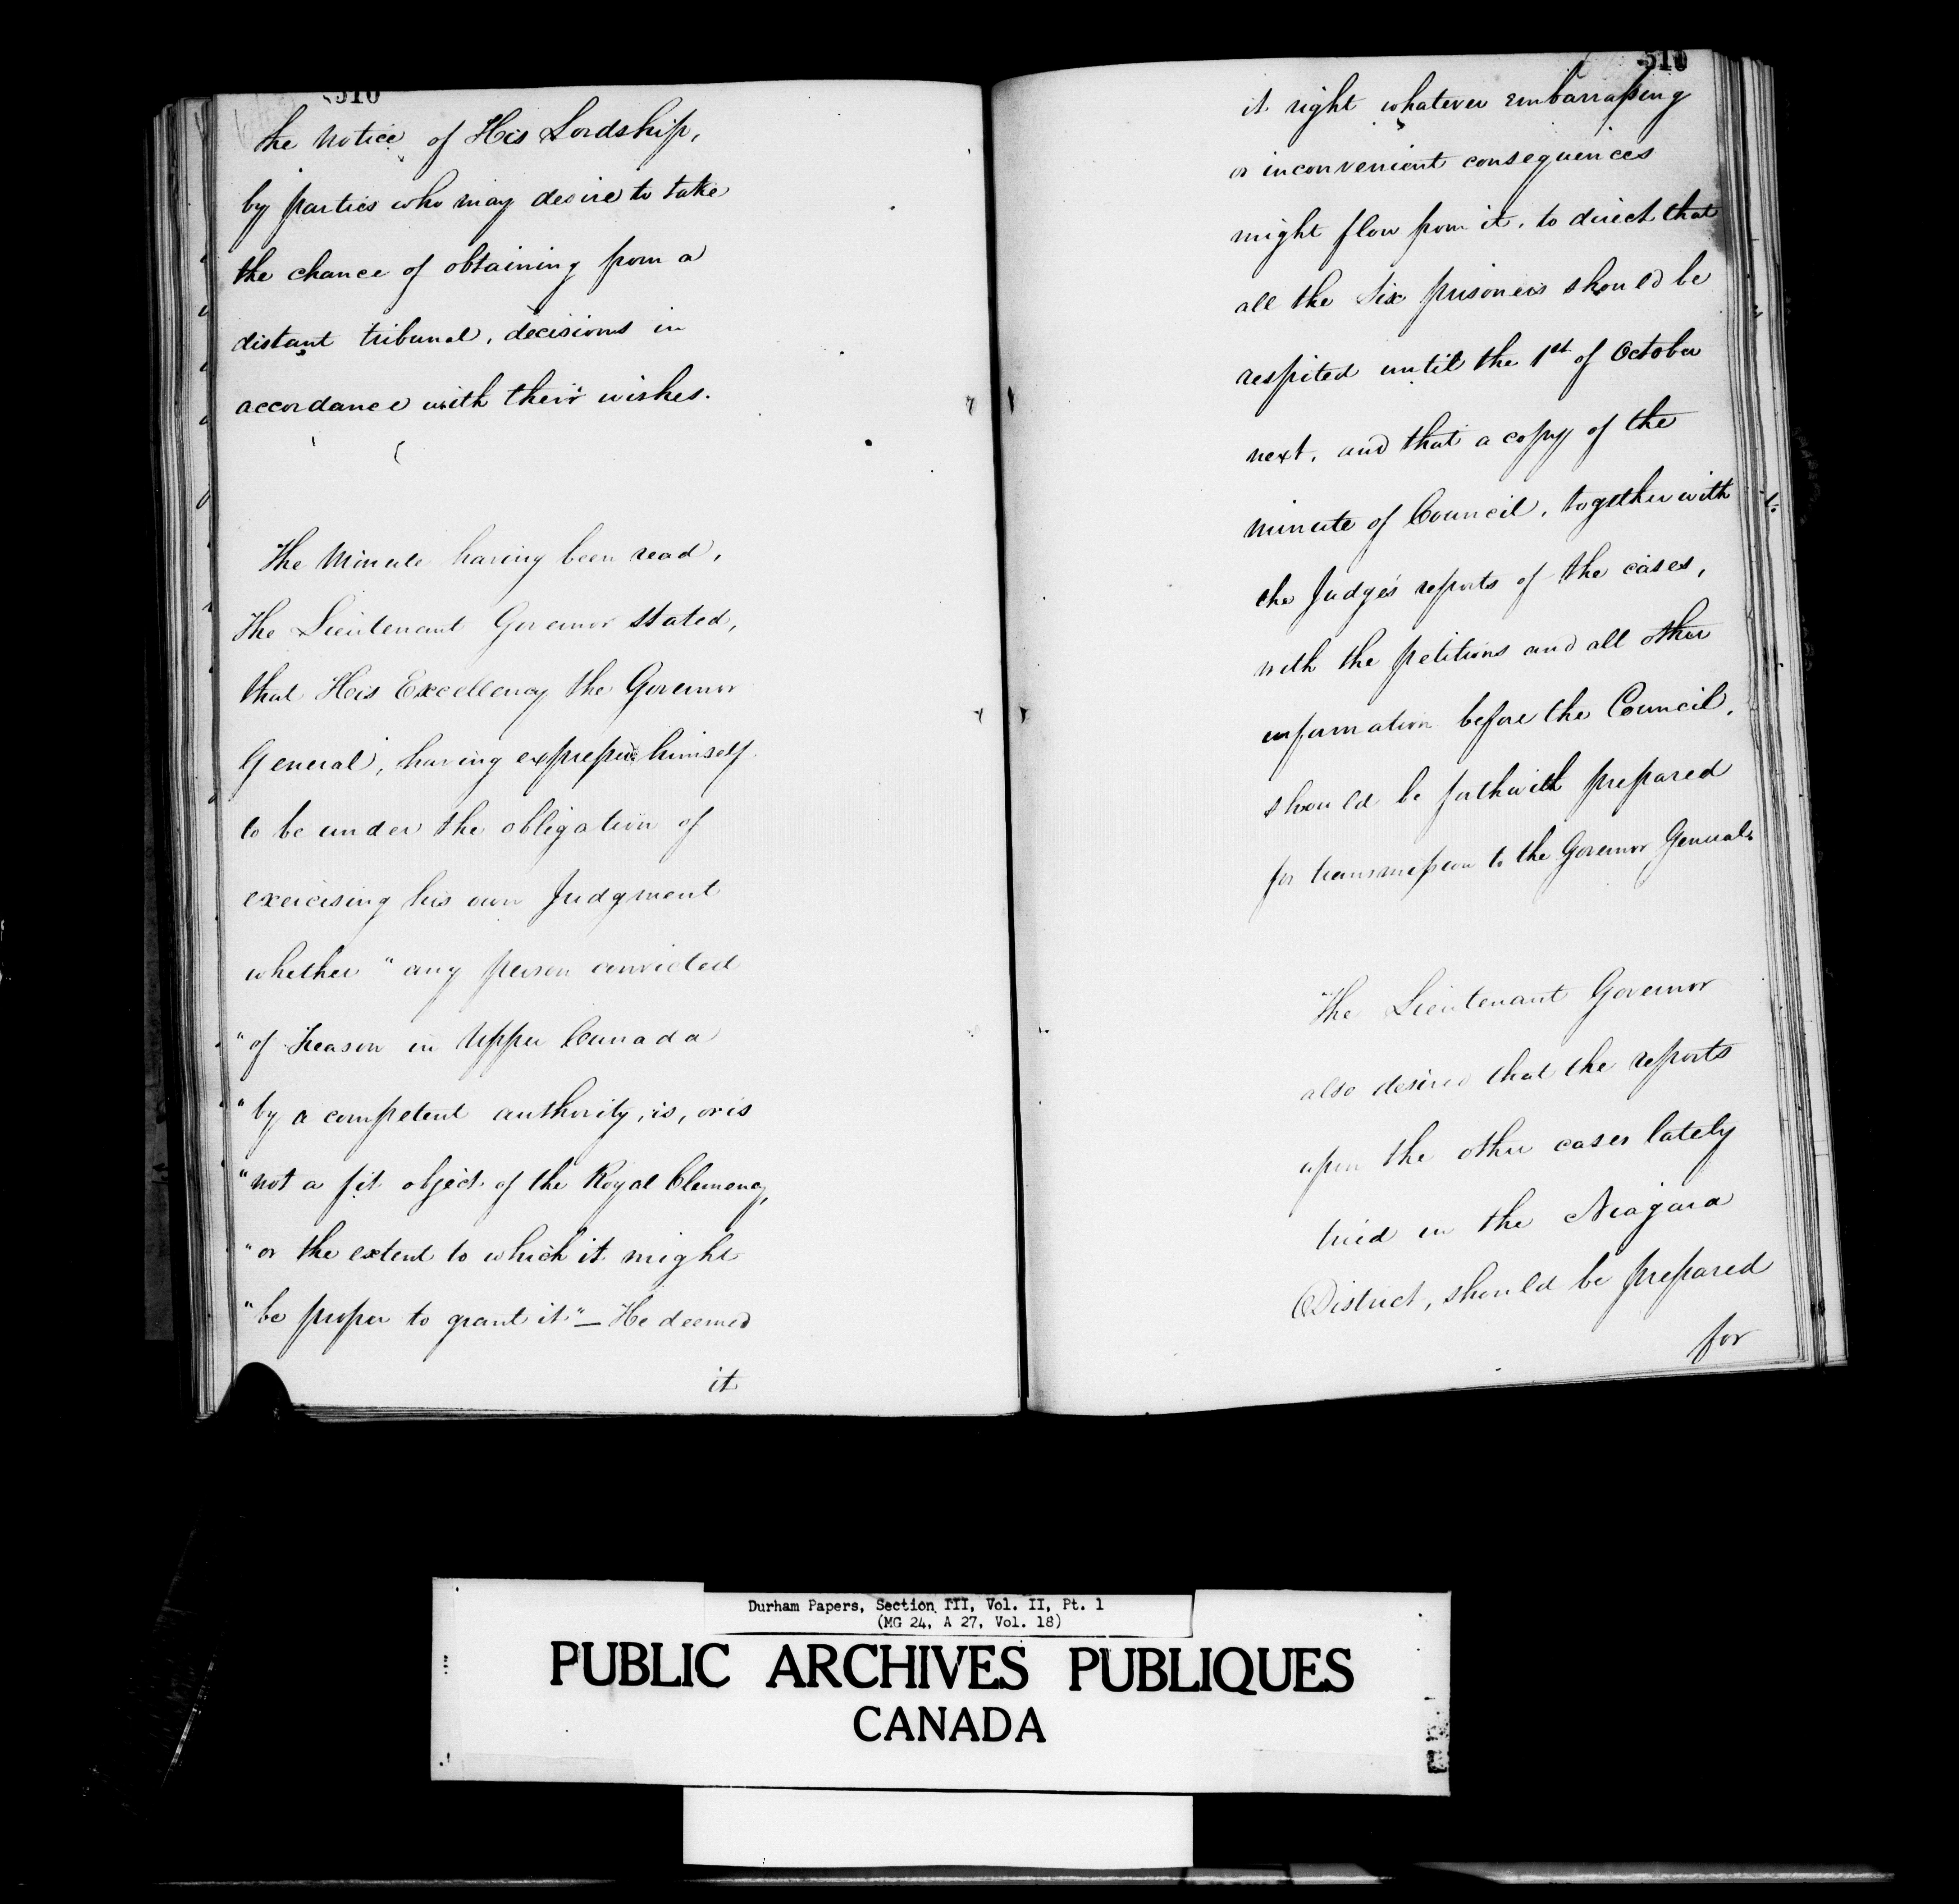 510
the notice of His Lordship,
by parties who may desire to take
the chance of obtaining from a
distant tribunal, decisions in
accordance with their wishes.
The Minute having been read,
The Lieutenant Governor stated,
that His Excellency the Governor
General, having expressed himself
to be under the obligation of
exercising his own Judgment
whether "any person convicted
"of Treason in Upper Canada
"by a competent authority, is, or is
"not a fit object of the Royal Clemency,
"or the extent to which it might
"be proper to grant it" — He deemed
it
510
it right whatever embarrassing
or inconvenient consequences
might flow from it, to direct that
all the Six prisoners should be
respited until the 1st of October
next, and that a copy of the
minute of Council, together with
the Judge's reports of the cases,
with the petitions and all other
information before the Council,
should be forthwith prepared
for transmission to the Governor General.
The Lieutenant Governor
also desired that the reports
upon the other cases lately
tried in the Niagara
District, should be prepared
for
Durham Papers, Section III, Vol. II, Pt. 1
(MG 24, A 27, Vol. 18)
PUBLIC ARCHIVES PUBLIQUES
CANADA